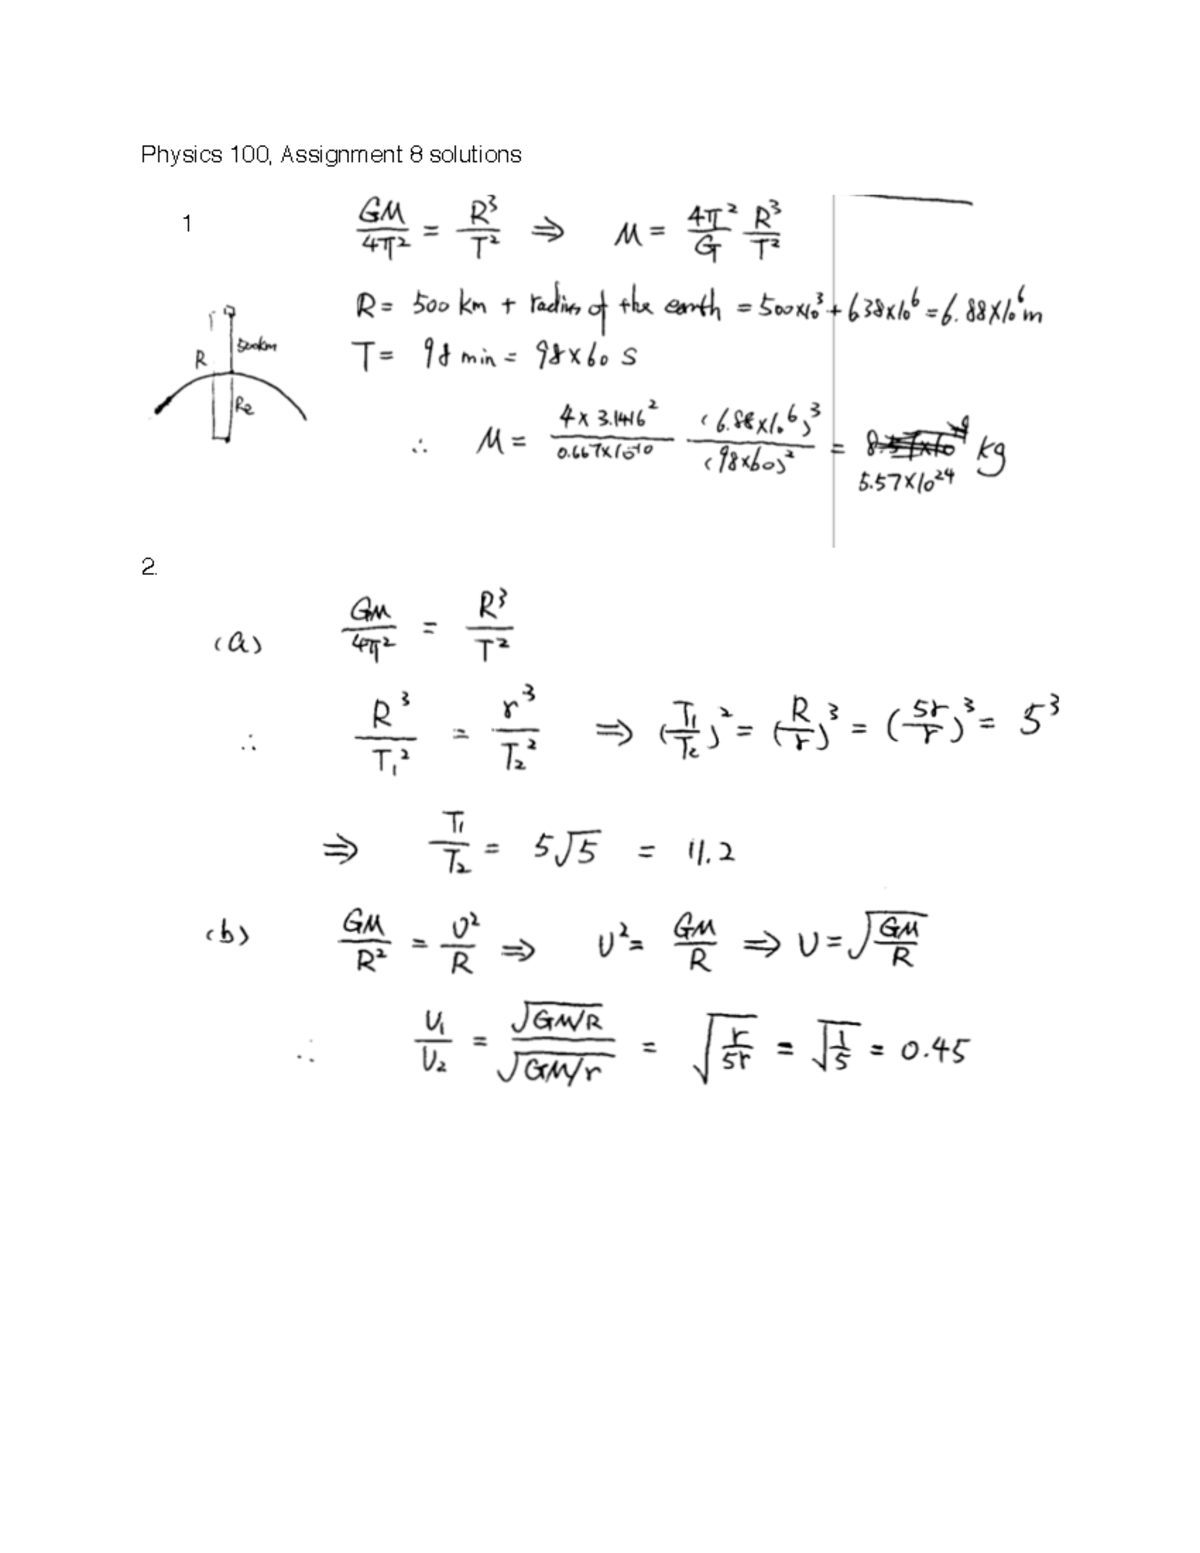 Physics 100, Assignment 8 solutions
1
GM/4π² = R³/T² ⇒ M = 4π²/G R³/T²
R = 500 km + radius of the earth = 500×10³ + 6.38×10⁶ = 6.88×10⁶ m
500km
R
Re
T = 98 min = 98×60 s
∴ M = 4×3.1416²/0.667×10⁻¹⁰ (6.88×10⁶)³/(98×60)² = kg
5.57×10²⁴
2.
(a) GM/4π² = R³/T²
∴ R³/T₁² = r³/T₂² ⇒ (T₁/T₂)² = (R/r)³ = (5r/r)³ = 5³
⇒ T₁/T₂ = 5√5 = 11.2
(b) GM/R² = v²/R ⇒ v² = GM/R ⇒ v = √(GM/R)
∴ v₁/v₂ = √(GM/R)/√(GM/r) = √(r/5r) = √(1/5) = 0.45